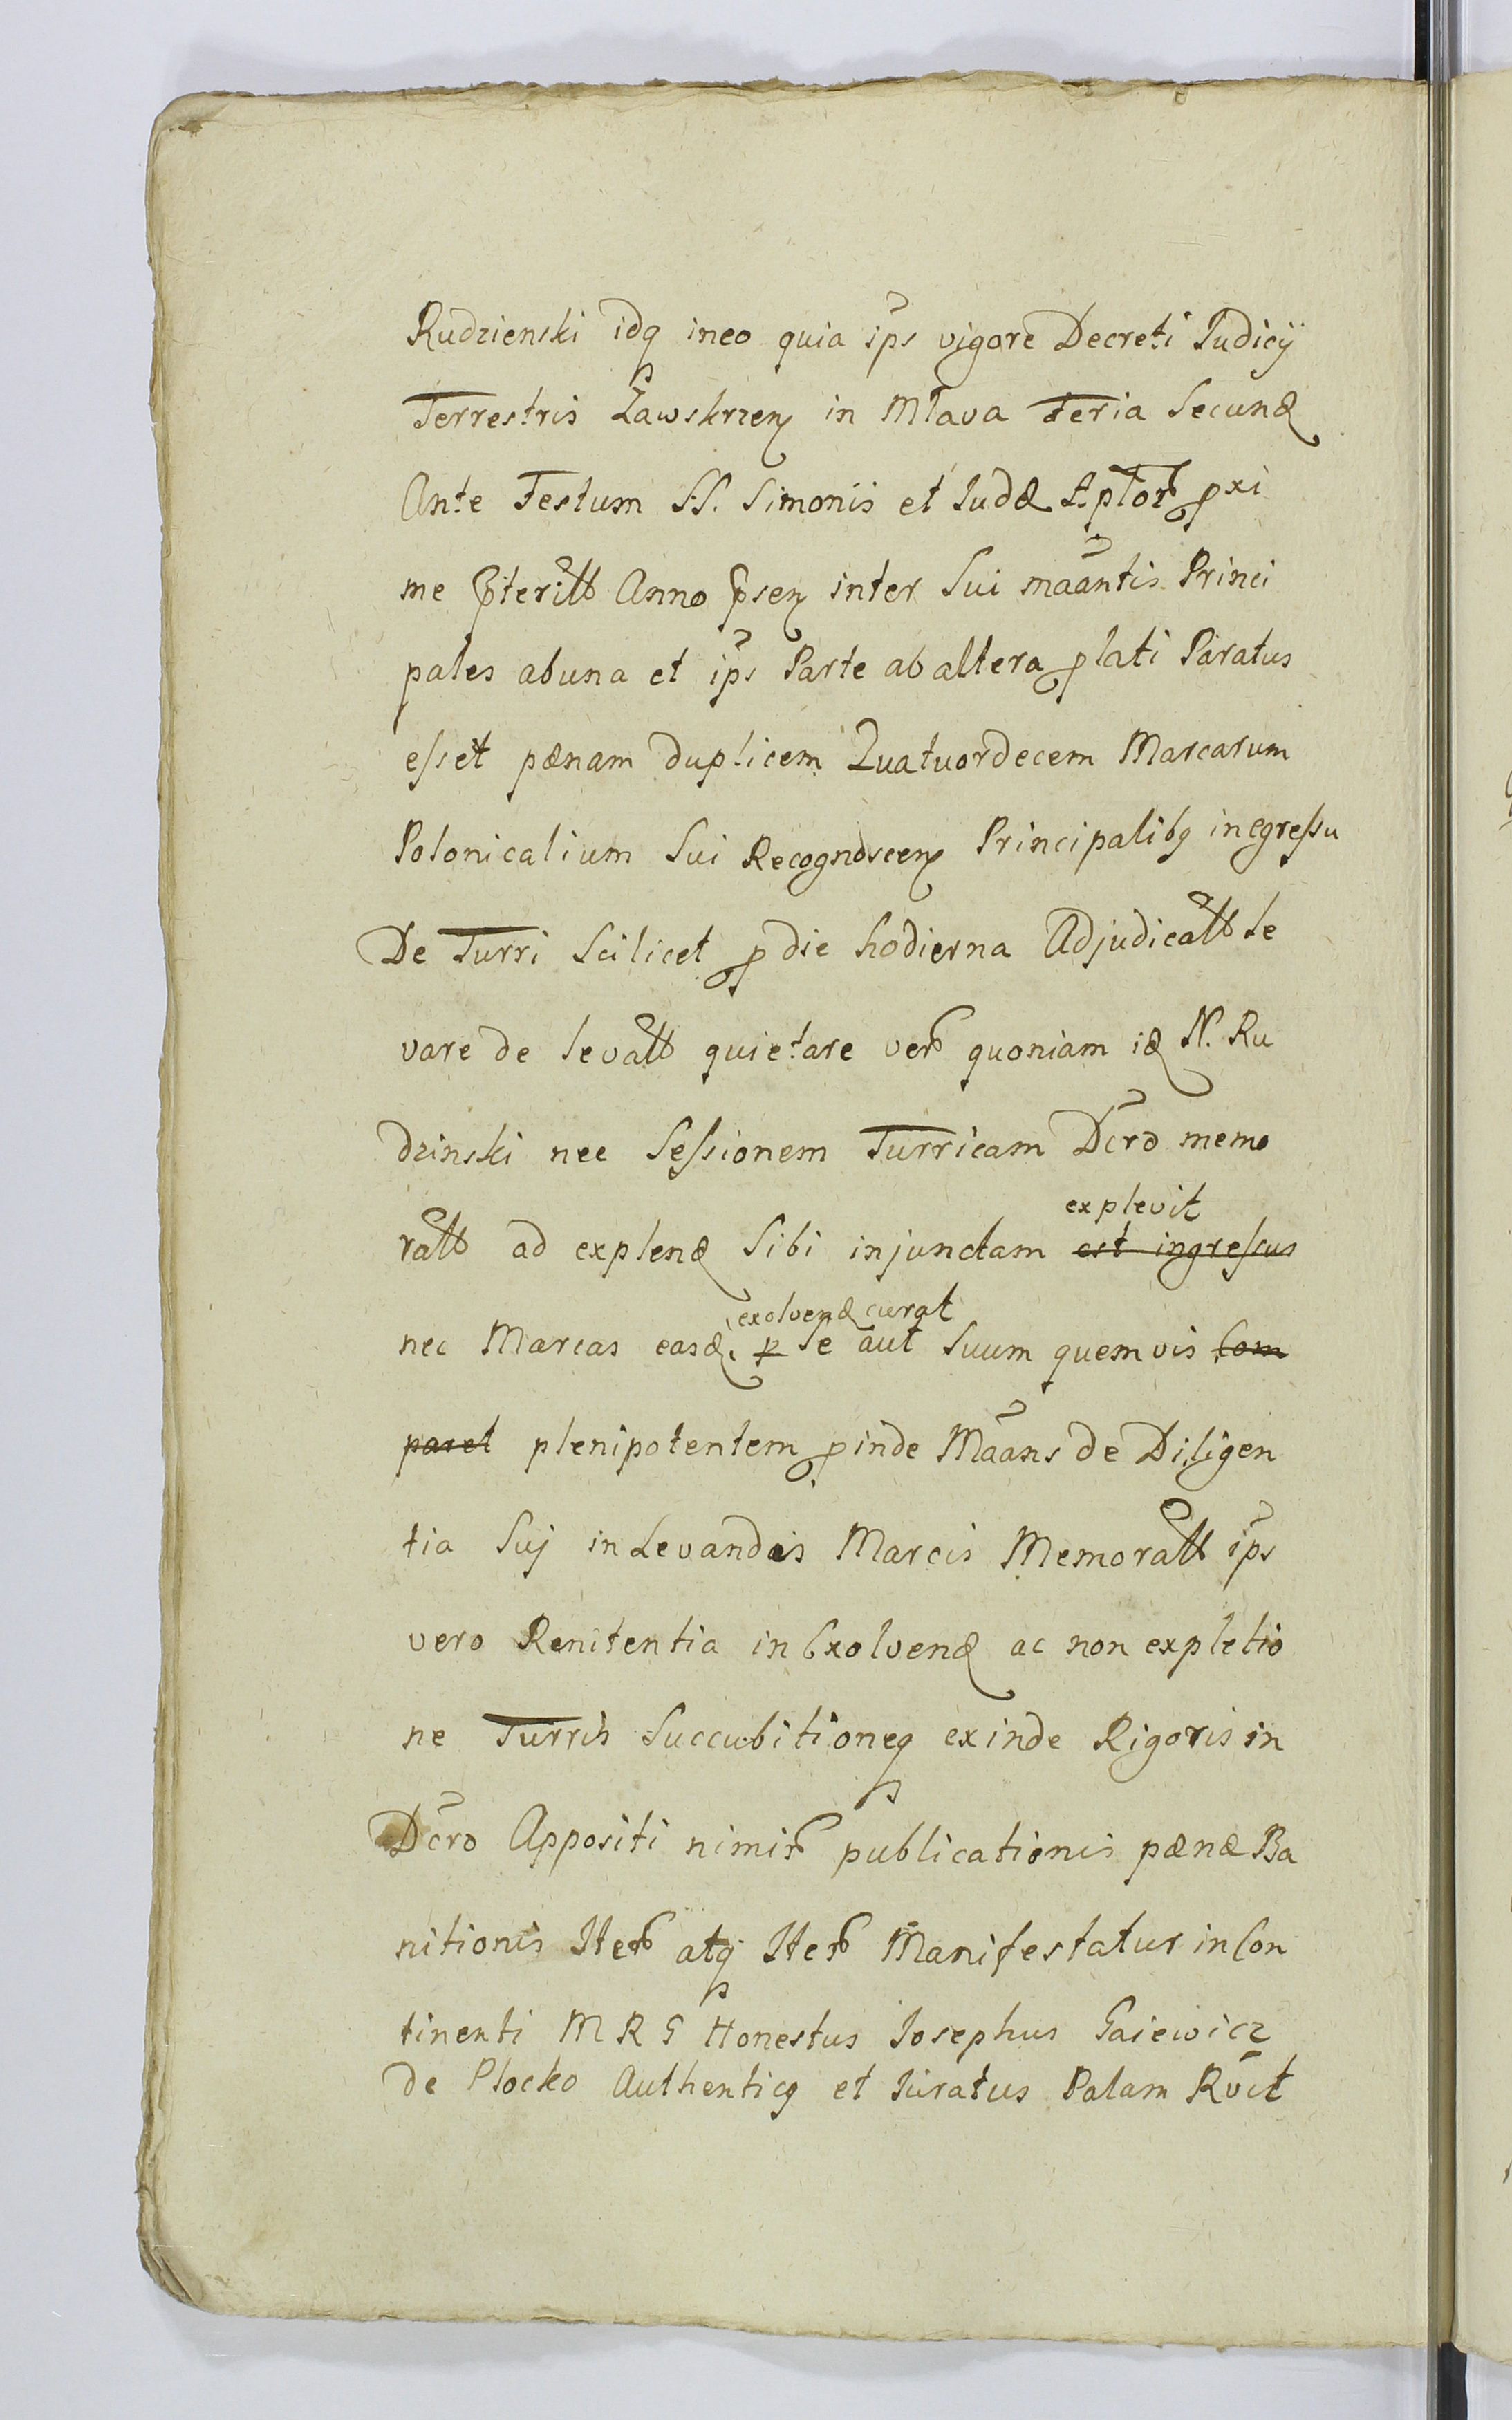 Rudzienski idq ineo quia ips vigore Decreti Judicij
Terrestris Zawskrzen in Mlava Feria Secund
Ante Festum SS. Simonis et Judæ Aplor pxi
me Pterit Anno Psen inter Sui maantis Princi
pales abuna et ips Parte ab altera plati Paratus
esset pænam duplicem Quatuordecem Marcarum
Polonicalium Sui Recognoscen Principalibq inegressu
De Turri Scilicet p die hodierna Adjudicatt le
vare de levatt quietare vero quoniam id N. Ru
dzinski nec Sessionem Turricam Dcro memo
explevit
ratt ad explend Sibi injunctam est ingressus
exolvend curat
nec Marcas easd p se aut Suum quemvis Com
paret plenipotentem pinde Maans de Diligen
tia Suj in Levandis Marcis Memoratt ips
vero Renitentia in Exolvend ac non expletio
ne Turris Succubitioneq exinde Rigoris in
Dcro Appositi nimir publicationis pænæ Ba
nitionis Iter atq Iter Manifestatur in Con
tinenti M R G Honestus Josephus Gaiewicz
de Plocko Authenticq et Juratus Palam Rvit